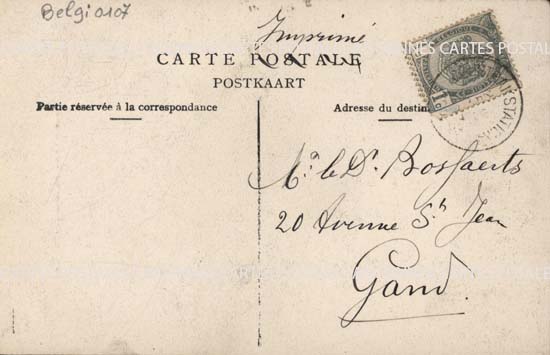 Belgi 0107
Imprimé
CARTE POSTALE
POSTKAART
Partie réservée à la correspondance
Adresse du destin
Mr le Dr Bossaerts
20 Avenue St Jean
Gand.